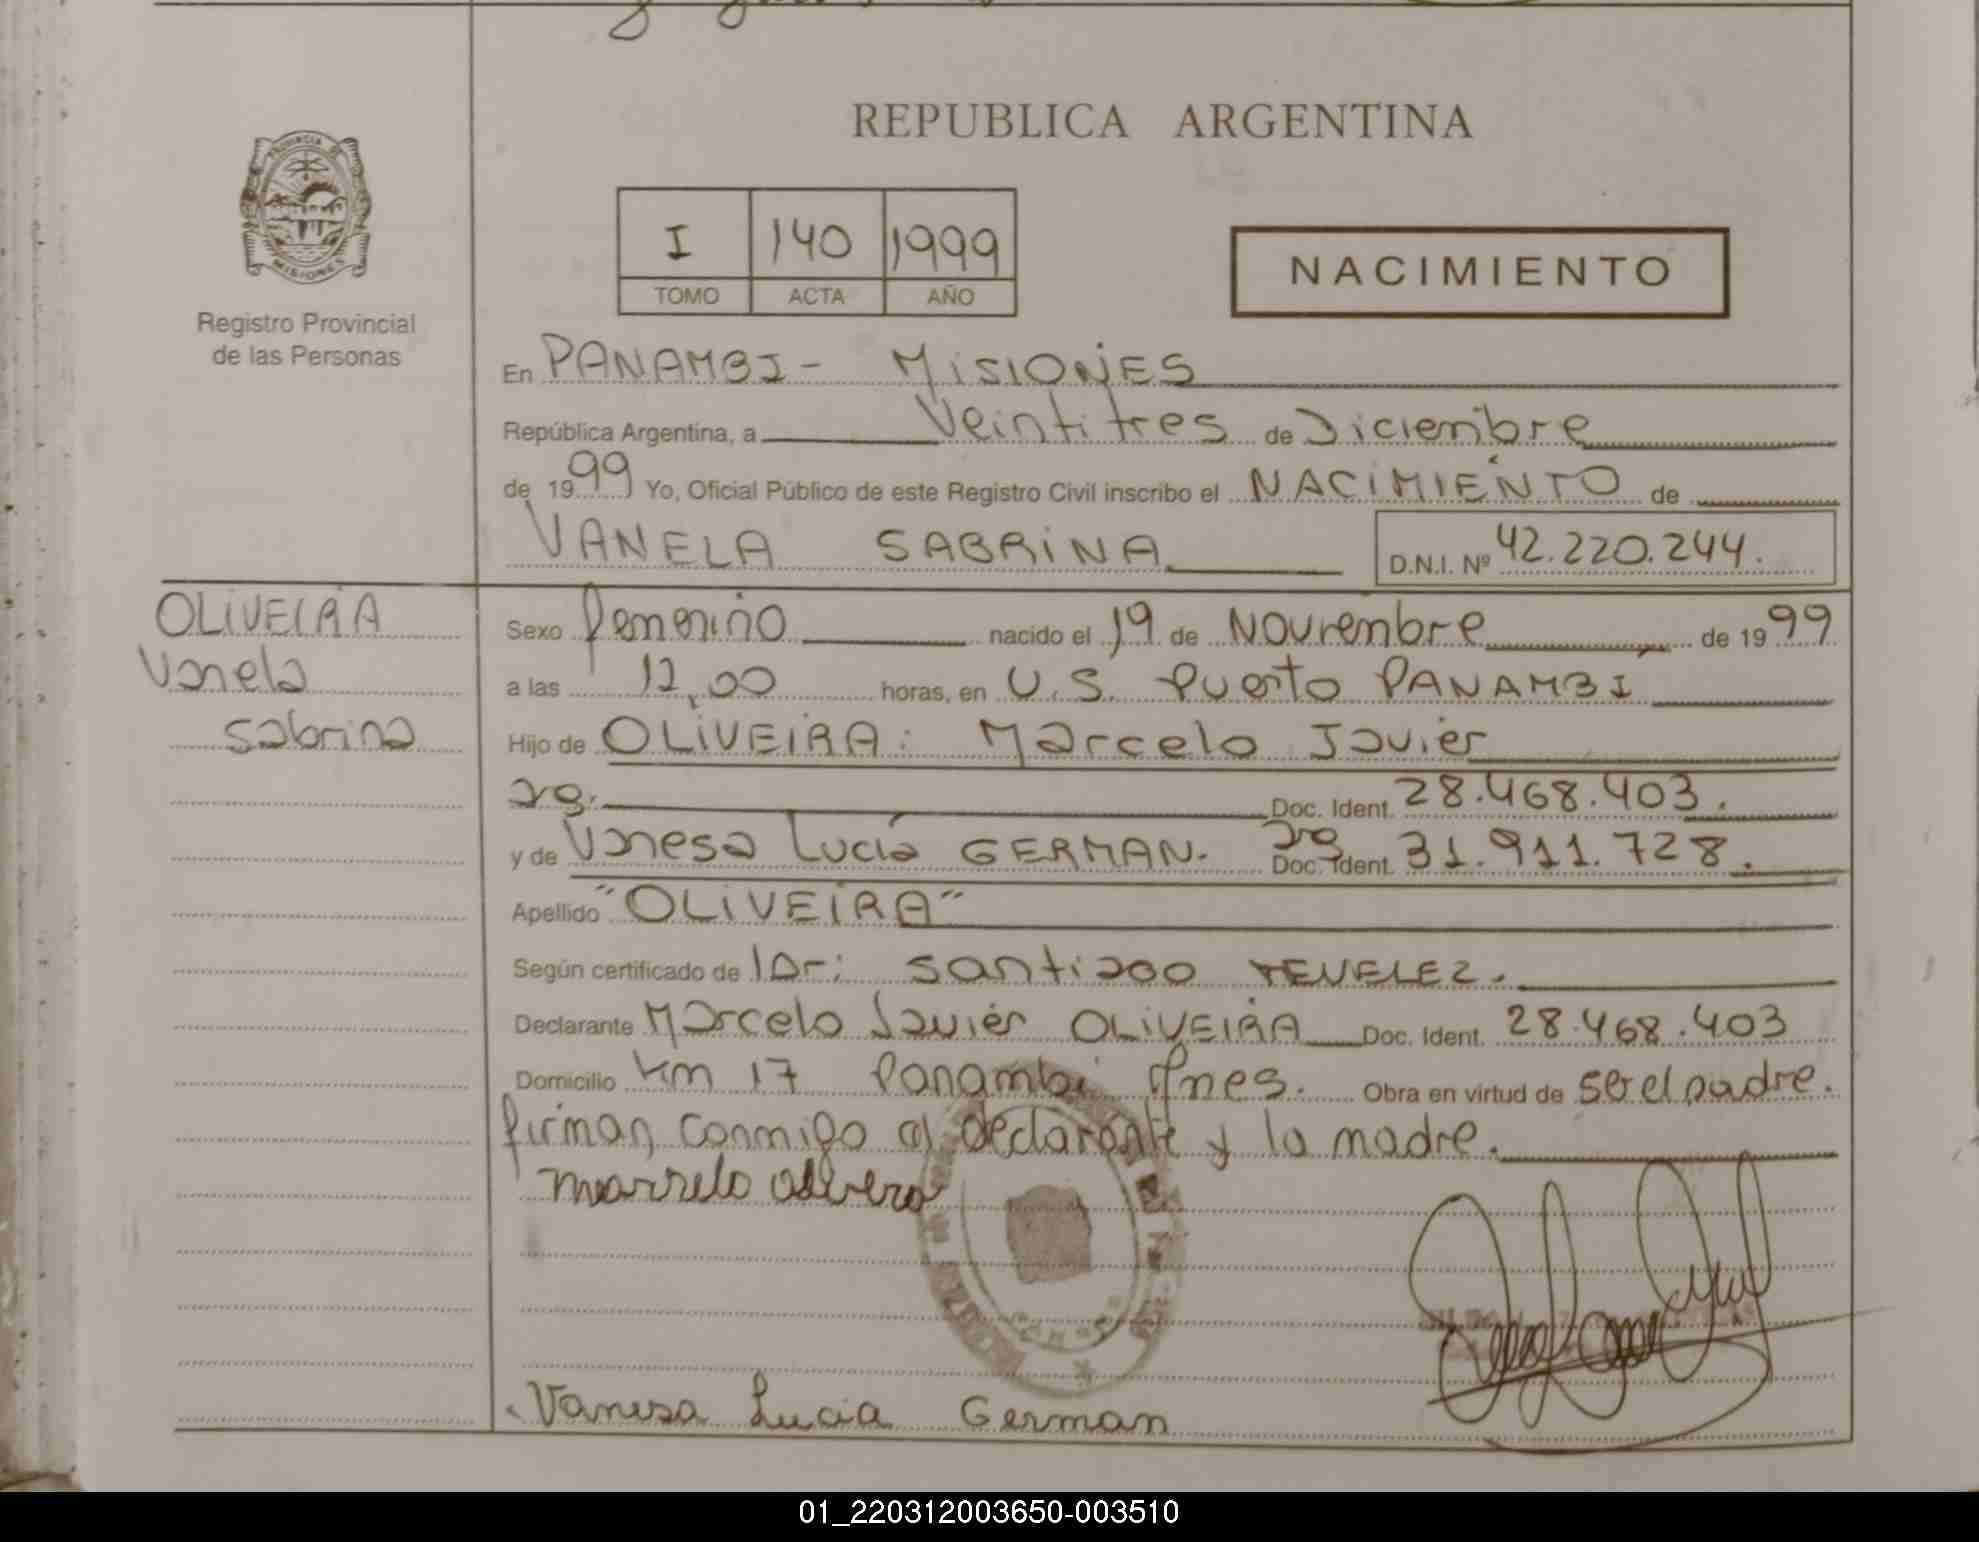 REPUBLICA ARGENTINA
PROVINCIA DE
MISIONES
Registro Provincial
de las Personas
I 140 1999
TOMO ACTA AÑO
NACIMIENTO
En PANAMBI - MISIONES
República Argentina, a Veintitres de Diciembre
de 1999 Yo, Oficial Público de este Registro Civil inscribo el NACIMIENTO de
VANELA SABRINA D.N.I. Nº 42.220.244.
OLIVEIRA
Vanela
Sabrina
Sexo femenino nacido el 19 de Noviembre de 1999
a las 12,00 horas, en U.S. Puerto PANAMBI
Hijo de OLIVEIRA: Marcelo Javier
arg. Doc. Ident. 28.468.403.
y de Vanesa Lucia GERMAN. arg Doc. Ident. 31.911.728.
Apellido "OLIVEIRA"
Según certificado de Dr: Santiago
Declarante Marcelo Javier OLIVEIRA Doc. Ident. 28.468.403
Domicilio Km 17 Panambi Mnes. Obra en virtud de ser el padre.
firman conmigo el declarante y la madre.
Vanesa Lucia German
01_220312003650-003510